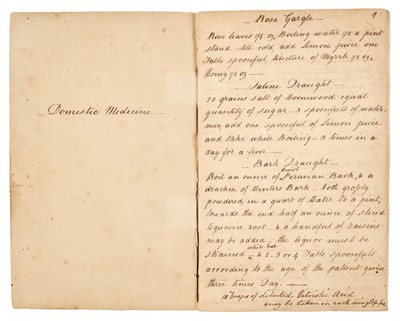 - Domestic Medicine -
- Rose Gargle - 1
Rose leaves ½ oz Boiling water ½ a pint
stand till cold, add Lemon juice one
Table spoonful tincture of Myrrh ½ oz
Honey ½ oz -
- Saline Draught -
20 grains salt of Wormwood equal
quantity of sugar - 2 spoonfuls of water
mix, add one spoonful of Lemon juice
and take while Boiling - 3 times in a
day for a fever -
- Bark Draught -
Boil an ounce of Peruvian Bark, & a
drachm of Winters Bark - both grossly
powdered, in a quart of Water to a pint,
towards the end half an ounce of sliced
liquorice root - & a handful of raisens
may be added - the liquor must be
while hot
strained & 2. 3 or 4 Table spoonfuls
according to the age of the patient given
three times Day -
10 Drops of diluted Vitriolic Acid
may be taken in each